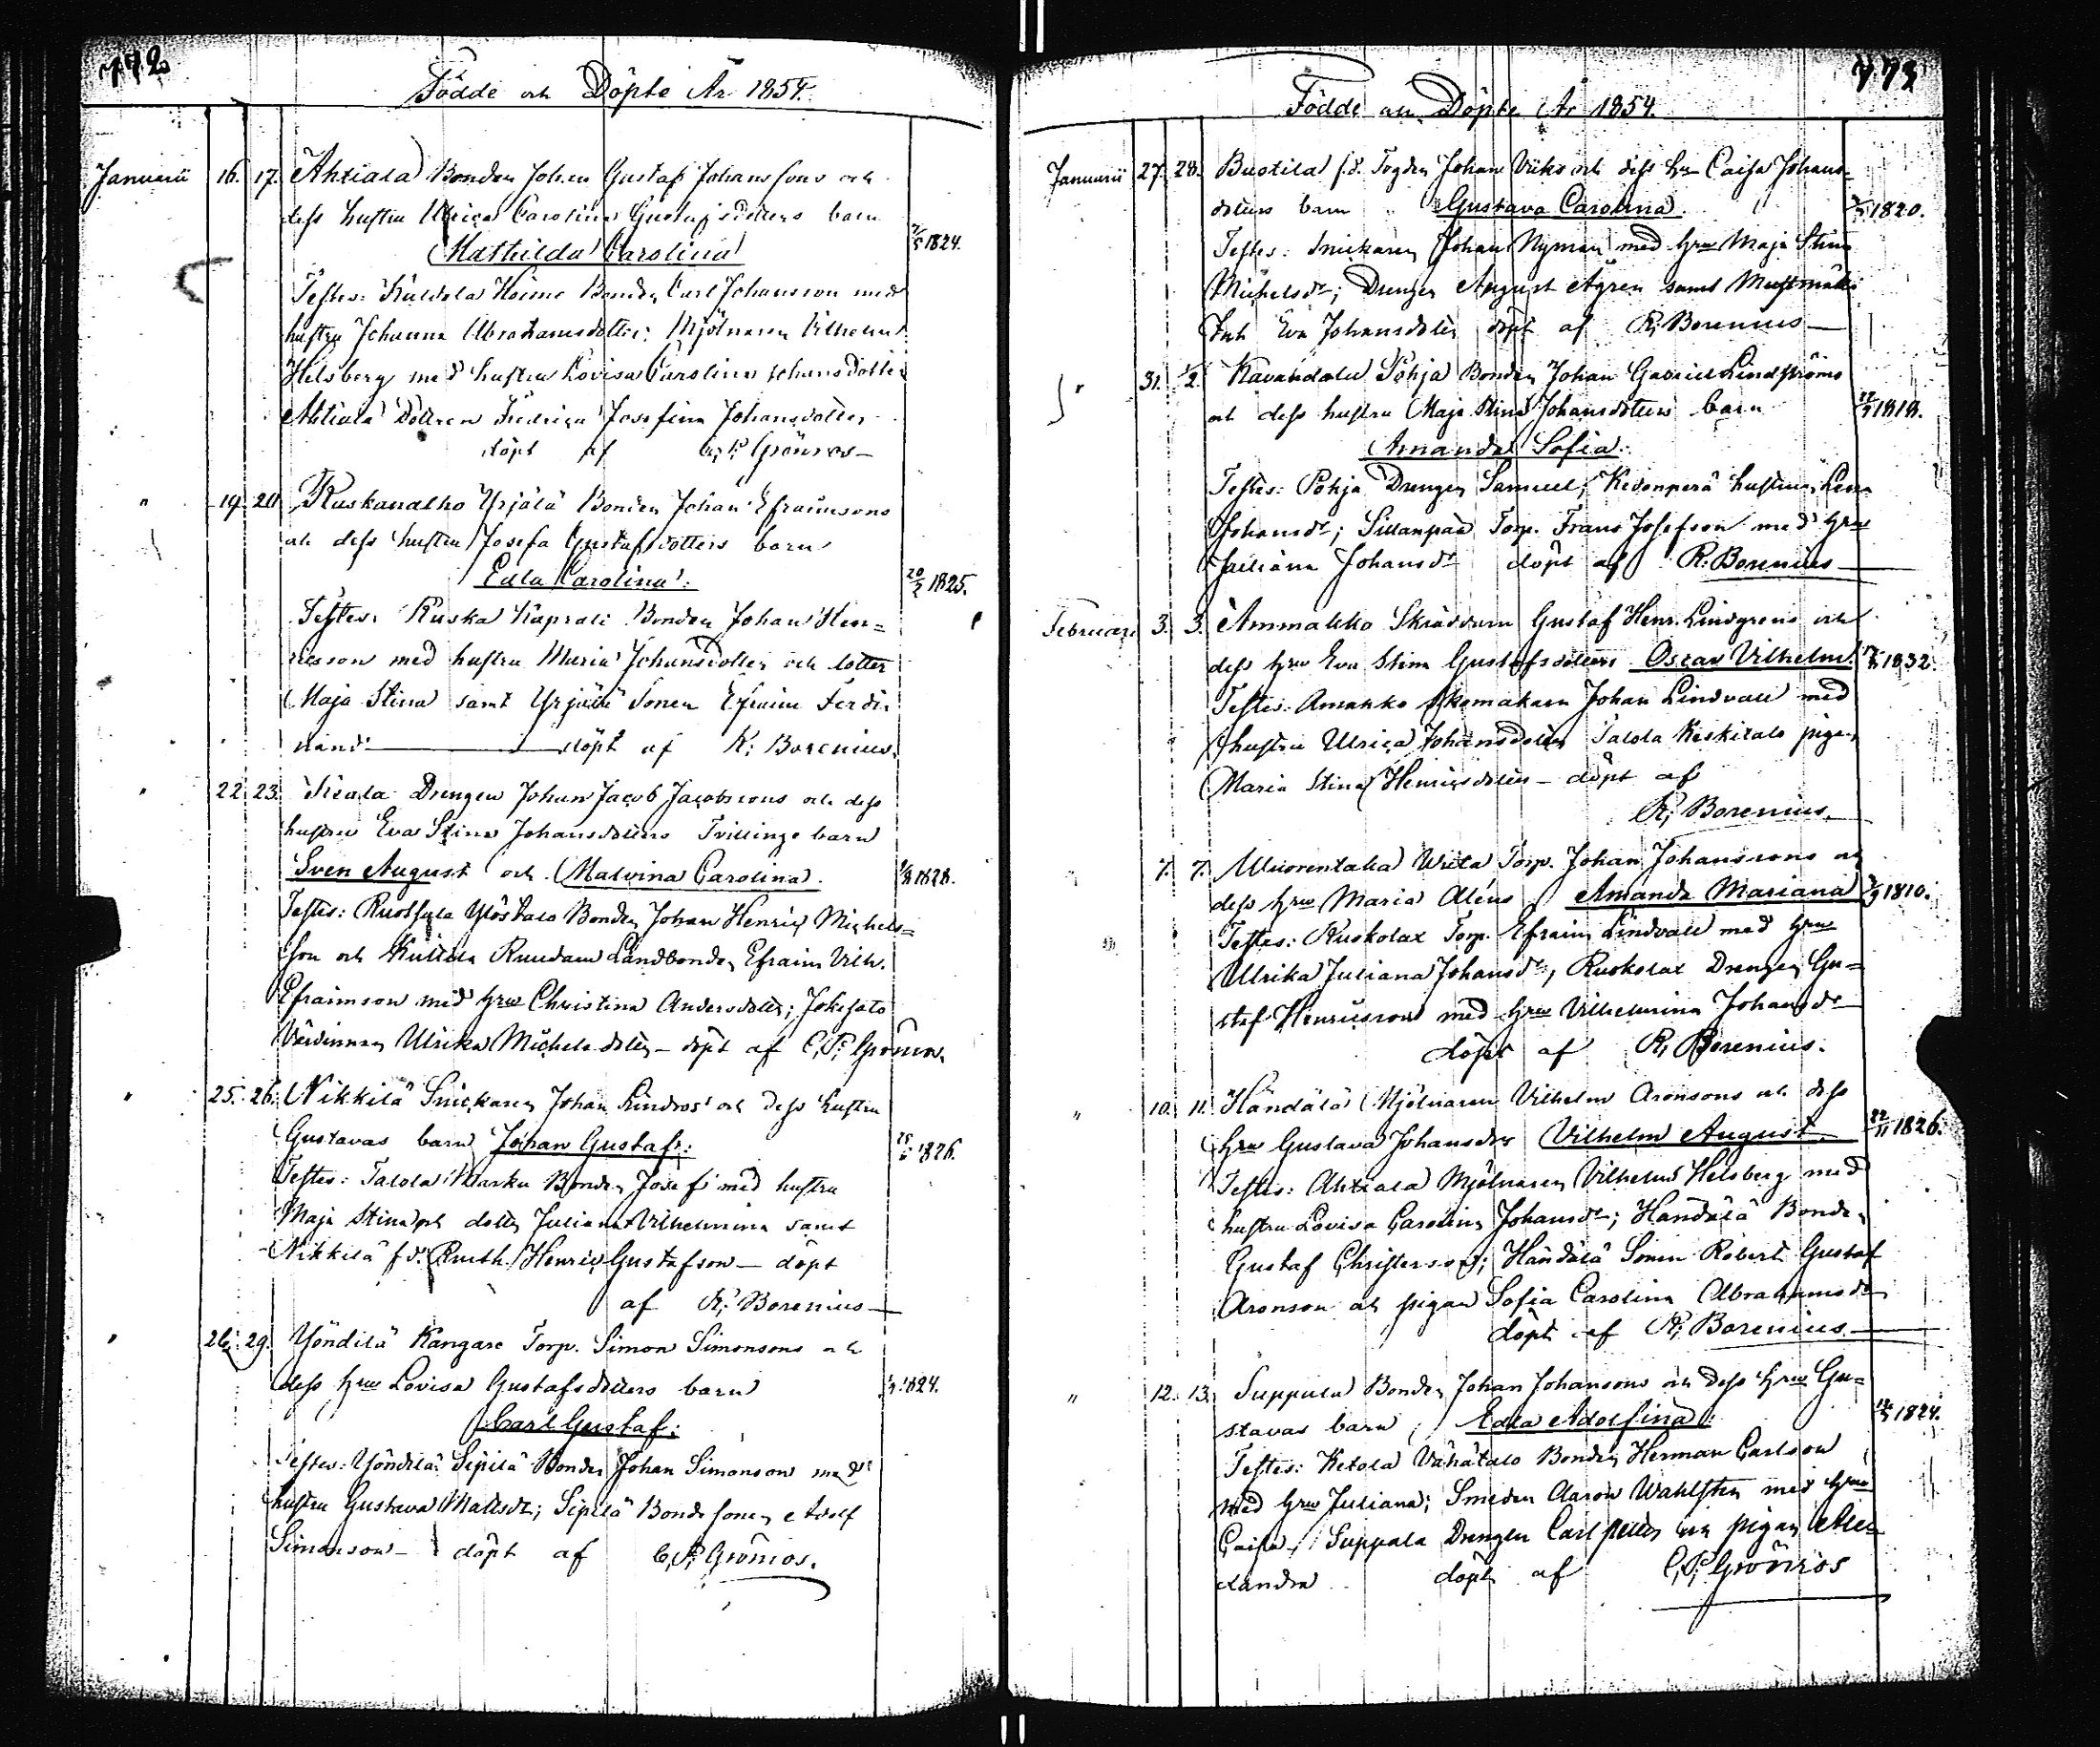 772
Födde och Döpte År 1854.
Januarii 16. 17. Ahtiala Bonden Johan Gustaf Johanssons och
dess hustru Ulrica Carolina Gustafsdotters barn
Mathilda Carolina 1824.
Testes: Heimo Bonden Carl Johansson med
hustru Johanna Abrahamsdotter; Mjölnaren Vilhelm
Helsberg med hustru Lovisa Carolina Johansdotter
Ahtiala Dottren Fredrica Josefina Johansdotter
döpt af C. P. Grönros
" 19. 20. Ruskanalho Yrjälä Bonden Johan Efraimsons
och dess hustru Josefa Gustafsdotters barn
Edla Carolina: 20/2 1825.
Testes: Ruska Kaprali Bonden Johan Hen=
ricsson med hustru Maria Johansdotter och dotter
Maja Stina samt Yrjälä Sonen Efraim Ferdi
nand döpt af R: Borenius.
" 22. 23. Drengen Johan Jacob Jacobssons och dess
hustru Eva Stina Johansdotters Tvillinge barn
Sven August och Malvina Carolina. 1828.
Testes: Ylöstalo Bonden Johan Henric Michels=
son och Landbonden Efraim Vilh.
Efraimson med hru Christina Andersdotter;
Värdinnan Ulrika Michelsdotter – döpt af C. P: Grönros.
" 25. 26. Nikkilä Snickaren Johan Lindros och dess hustru
Gustavas barn Johan Gustaf: 1826.
Testes: Talola Marku Bonden Josef med hustru
Maja Stina och dotter Juliana Vilhelmina samt
Nikkilä f.d. Rusth. Henric Gustafson – döpt
af R: Borenius
" 26. 29. Yöndilä Kangare Torp. Simon Simonsons och
dess hru Lovisa Gustafsdotters barn 1824.
Carl Gustaf:
Testes: Yöndilä Sipilä Bonden Johan Simonson med
hustru Gustava Mattsdr; Sipilä Bondesonen Adolf
Simonson – döpt af C. P. Grönros.
773
Födde och Döpte År 1854.
Januarii 27. 28. Buotila f.d. Johan Viks och dess hru Caisa Johans=
dotters barn Gustava Carolina. 1820.
Testes: Snickaren Johan Nyman med hru Maja Stina
Michelsdr; Drengen August Ågren samt
Eva Johansdotter döpt af R: Borenius
" 31. 1/2. Pohja Bonden Johan Gabriel Lindströms
och dess hustru Maja Stina Johansdotters barn 1818.
Amanda Sofia:
Testes: Pohja Drengen Samuel; Kedonperä hustrun Lena
Johansdr; Sillanpää Torp. Frans Josefson med hru
Juliana Johansdr döpt af R: Borenius
Februari 3. 3. Ammakko Skräddarn Gustaf Henr. Lindgrens och
dess hru Eva Stina Gustafsdotters Oscar Vilhelm. 1832.
Testes: Amakko Skomakarn Johan Lindvall med
hustru Ulrica Johansdotter Talola Keskitalo pigan
Maria Stina Henricsdotter – döpt af
R; Borenius.
" 7. 7. Torp. Johan Johanssons och
dess hru Maria Aléns Amanda Mariana 1810.
Testes: Ruokolax Torp. Efraim Lindvall med hru
Ulrika Juliana Johansdr; Ruokolax Drengen Gu=
staf Henricsson med hru Vilhelmina Johansdr
döpt af R; Borenius.
" 10. 11. Händälä Mjölnaren Vilhelm Aronsons och dess
hru Gustava Johansdrs Vilhelm August. 22/11 1826.
Testes: Ahtiala Mjölnaren Vilhelm Helsberg med
hustru Lovisa Carolina Johansdr; Händälä Bonden
Gustaf Christersson; Händälä Sonen Robert Gustaf
Aronson och pigan Sofia Carolina Abrahamsdr
döpt af R; Borenius
" 12. 13. Suppala Bonden Johan Johansons och dess hru Gu=
stavas barn; Edla Adolfina: 1824.
Testes: Ketola Vähätalo Bonden Herman Carlson
med hru Juliana; Smeden Aaron Wahlsten med hru
Caisa. Suppala Drengen Carl och pigan Alex
andra döpt af C. P: Grönros